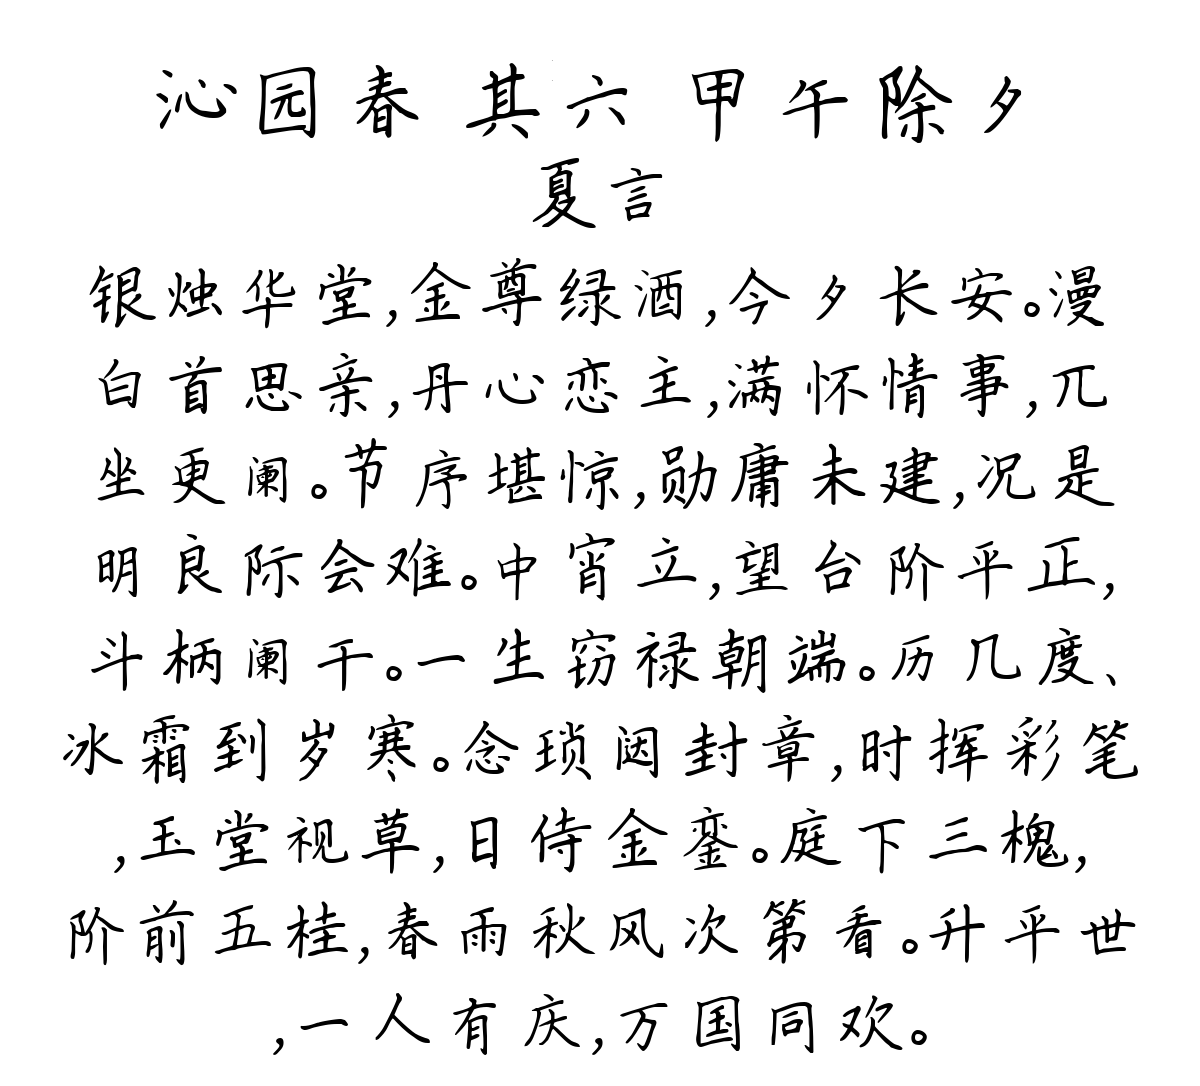 沁园春 其六 甲午除夕
夏言
银烛华堂,金尊绿酒,今夕长安。漫
白首思亲,丹心恋主,满怀情事,兀
坐更阑。节序堪惊,勋庸未建,况是
明良际会难。中宵立,望台阶平正,
斗柄阑干。一生窃禄朝端。历几度、
冰霜到岁寒。念琐闼封章,时挥彩笔
,玉堂视草,日侍金銮。庭下三槐,
阶前五桂,春雨秋风次第看。升平世
,一人有庆,万国同欢。